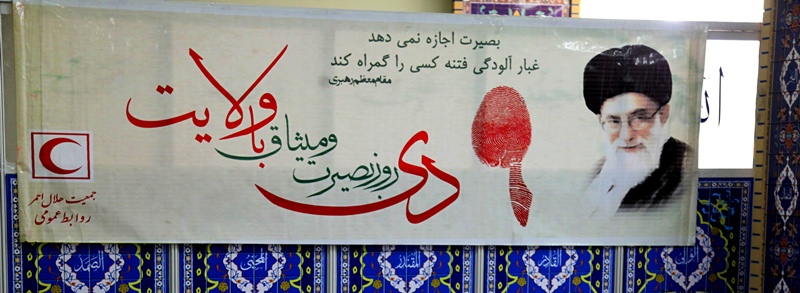 بصیرت اجازه نمی دهد
غبار آلودگی فتنه کسی را گمراه کند
مقام معظم رهبری
۹ دی روز بصیرت و میثاق با ولایت
جمعیت هلال احمر
روابط عمومی
الصمد
المقتدر
القادر